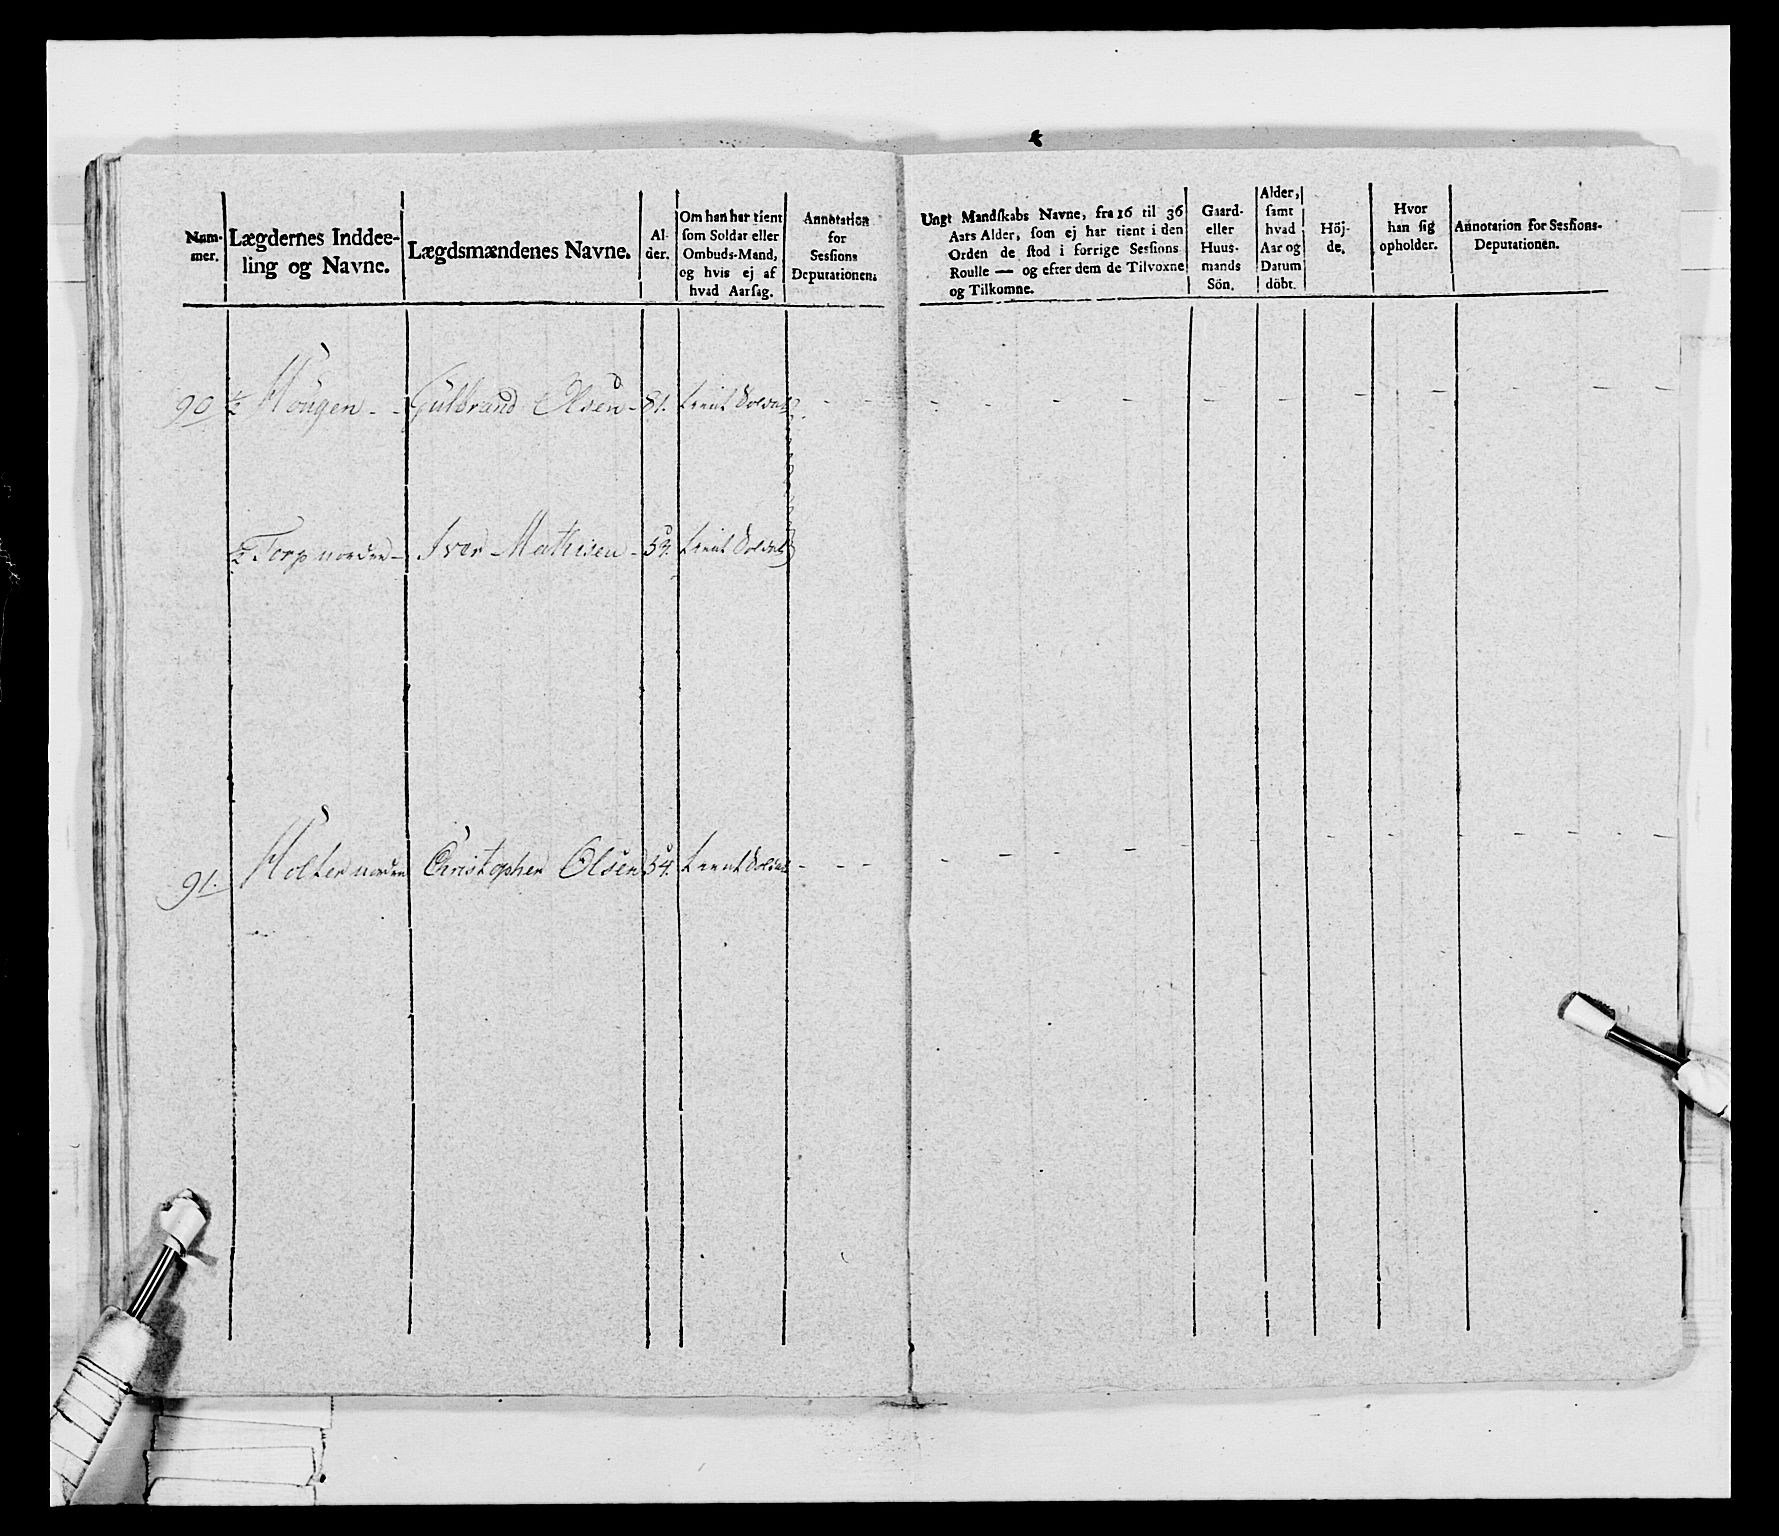 Num-
mer.
Lægdernes Inddee-
ling og Navne.
Lægdsmændenes Navne.
Al-
der.
Om han har tient
som Soldat eller
Ombuds-Mand,
og hvis ej af
hvad Aarsag.
Annotation
for
Sessions
Deputationen.
Ungt Mandskabs Navne, fra 16 til 36
Aars Alder, som ej har tient i den
Orden de stod i forrige Sessions
Roulle — og efter dem de Tilvoxne
og Tilkomne.
Gaard-
eller
Huus-
mands
Sön.
Alder,
samt
hvad
Aar og
Datum
döbt.
Höj-
de.
Hvor
han sig
opholder.
Annotation for Sessions-
Deputationen.
90 ½ Hougen - - Gulbrand Olsen - 81. tient Soldat
½ Torp nordre - Iver Mathisen - 59. tient Soldat
91. Holter nordre Christopher Olsen 54. tient Soldat - - -